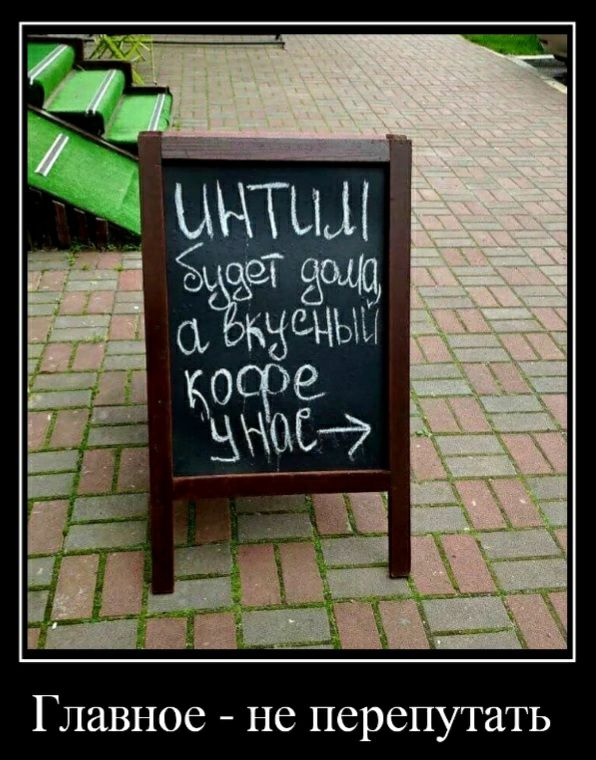 ИНТИМ
будет дома,
а вкусный
кофе
у нас →
Главное - не перепутать